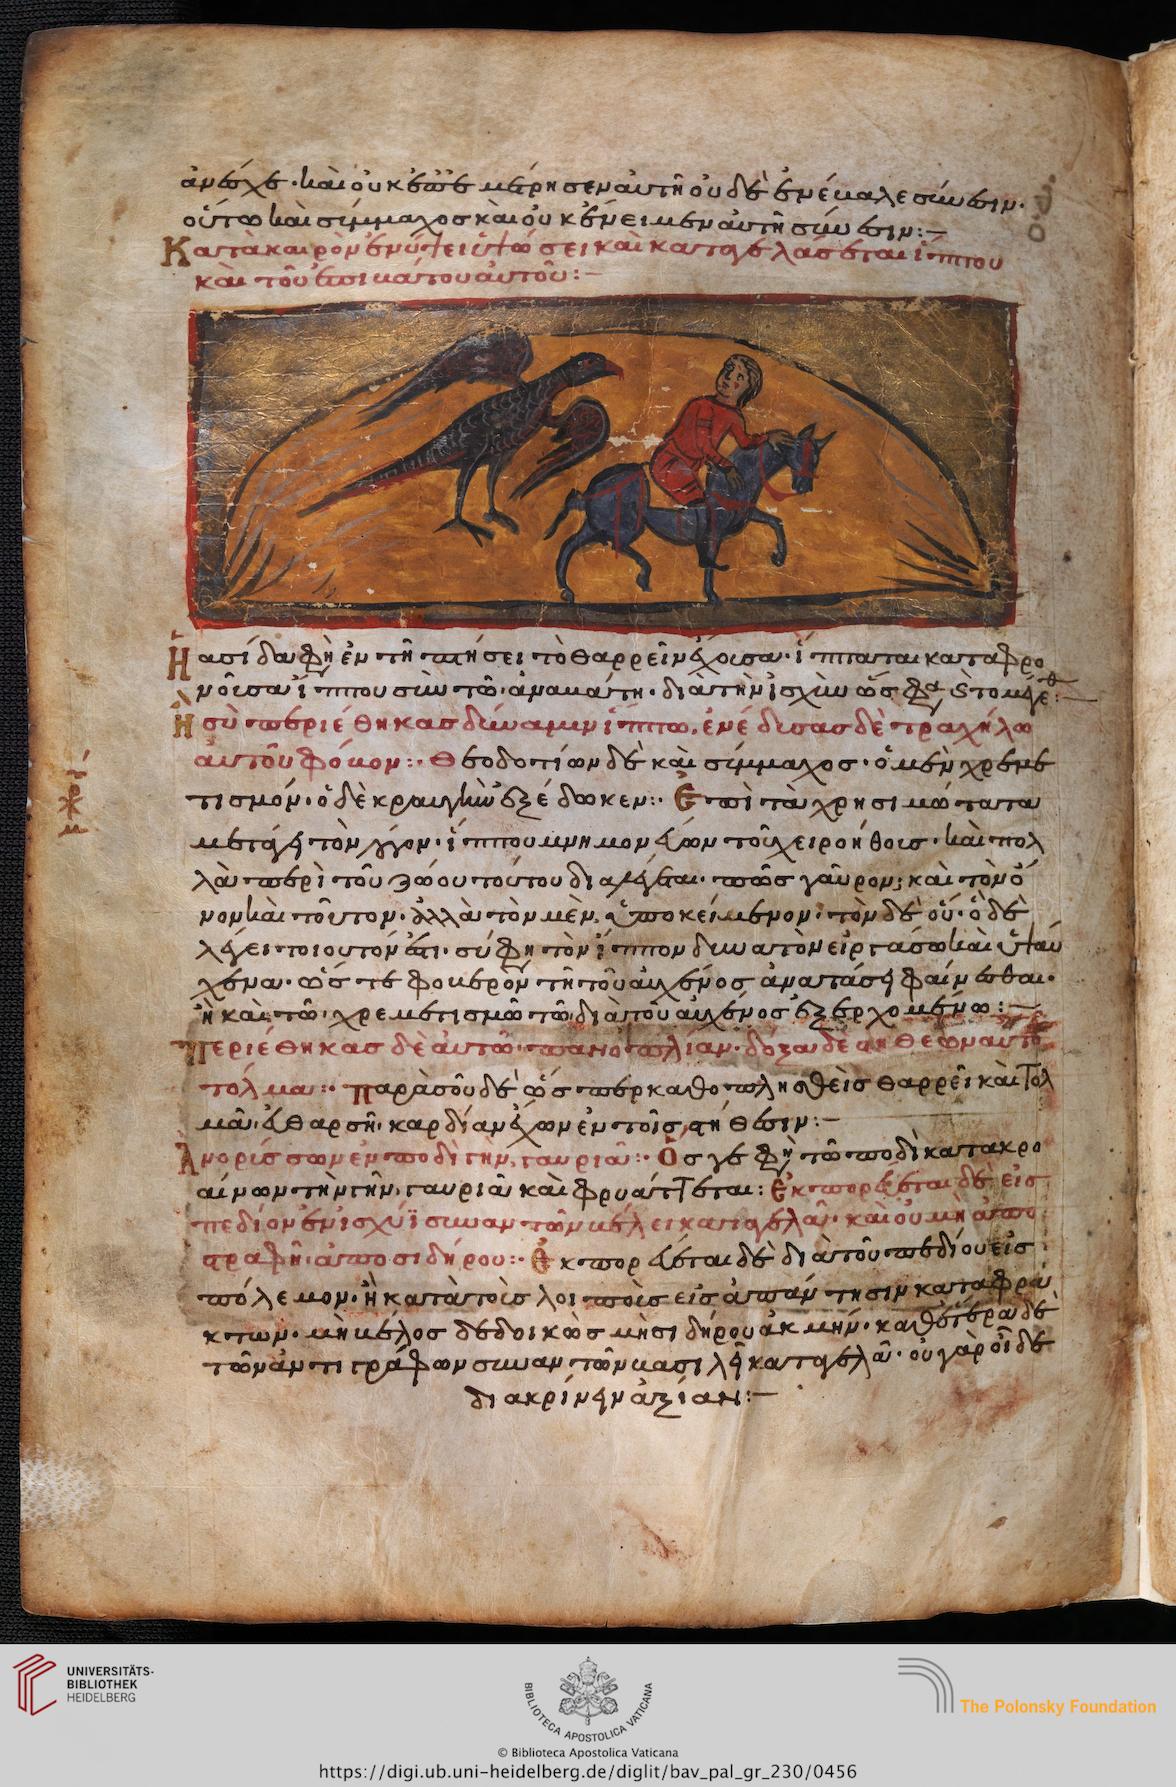 καὶ οὐκ ἐπεμέρησεν αὐτῇ οὐδὲ ἐνέμαλε σύνεσιν·
οὕτω καὶ σύμμαχος καὶ οὐκ ἔνειμεν αὐτῇ σύνεσιν:–
Κατὰ καιρὸν ἐν ὕψει ὑψώσει καὶ καταγελάσεται ἵππου
καὶ τοῦ ἐπιβάτου αὐτοῦ:–
Ἡ ἀσίδα φησὶ ἐν τῇ πτήσει τὸ θαρρεῖν ἔχουσα· ἵπταται καταφρο
νοῦσα ἵππου σὺν τῷ ἀναβάτῃ· διὰ τὴν ἰσχὺν
Ἢ σὺ περιέθηκας δύναμιν ἵππω, ἐνέδυσας δὲ τραχήλω
αὐτοῦ φόβον:· Θεοδοτίων δὲ καὶ σύμμαχος· ὁ μὲν χρεμε
τισμόν· ὁ δὲ κραυγὴν ἐξέδωκεν:· Ἐπὶ τὰ χρησιμώτατα
μετάγει τὸν λόγον· ἵππου μνημονεύων τοῦ χειροήθους· καὶ πολ
λὰ περὶ τοῦ ζώου τούτου διαλέγεται· πῶς γαῦρον; καὶ τὸν ὄ
νον καὶ τοῦτον· ἀλλὰ τὸν μὲν, ὑποκείμενον· τὸν δὲ οὔ· ὃ δὲ
λέγει τοιοῦτόν ἐστι· σύ φησι τὸν ἵππον δυνατὸν εἰργάσω καὶ ὑψαύ
χενα· ὥστε φοβερὸν τῇ τοῦ αὐχένος ἀναστάσει φαίνεσθαι·
ἢ καὶ τῷ χρεμετισμῷ τῷ διὰ τοῦ αὐχένος ἐξερχομένω:–
Περιέθηκας δὲ αὐτῷ πανοπλίαν· δόξαν δὲ στηθέων αὐτοῦ
τόλμαν:· Παρὰ σοῦ δὲ ὥσπερ καθοπλισθεὶς θαρρεῖ καὶ τολ
μᾷ· εὐθαρσῆ καρδίαν ἔχων ἐν τοῖς στήθεσιν:–
Ἀνορύσσων ἐν ποδὶ τὴν, γαυριᾷ:· Ὅς γε φησὶ τῷ ποδὶ κατακρο
αίνων τὴν γῆν, γαυριᾷ καὶ φρυάττεται: Ἐκπορεύεται δὲ εἰς
πεδίον ἐν ἰσχύϊ συναντῶν βέλει καταγελᾷ· καὶ οὐ μὴ ἀπο
στραφῇ ἀπὸ σιδήρου:· Ἐκπορεύεται δὲ διὰ τοῦ πεδίου εἰς
πόλεμον· ἢ κατὰ τοὺς λοιποὺς εἰς ἀπάντησιν καταφρά
κτων· μὴ βέλος δεδοικὼς μὴ σιδήρου ἀκμήν· καθ' ἕτερα δὲ
τῶν ἀντιγράφων συναντῶν βασιλεῖ καταγελᾷ· οὐ γὰρ οἶδε
διακρίνειν ἀξίαν:–
UNIVERSITÄTS-
BIBLIOTHEK
HEIDELBERG
BIBLIOTECA APOSTOLICA VATICANA
The Polonsky Foundation
© Biblioteca Apostolica Vaticana
https://digi.ub.uni-heidelberg.de/diglit/bav_pal_gr_230/0456